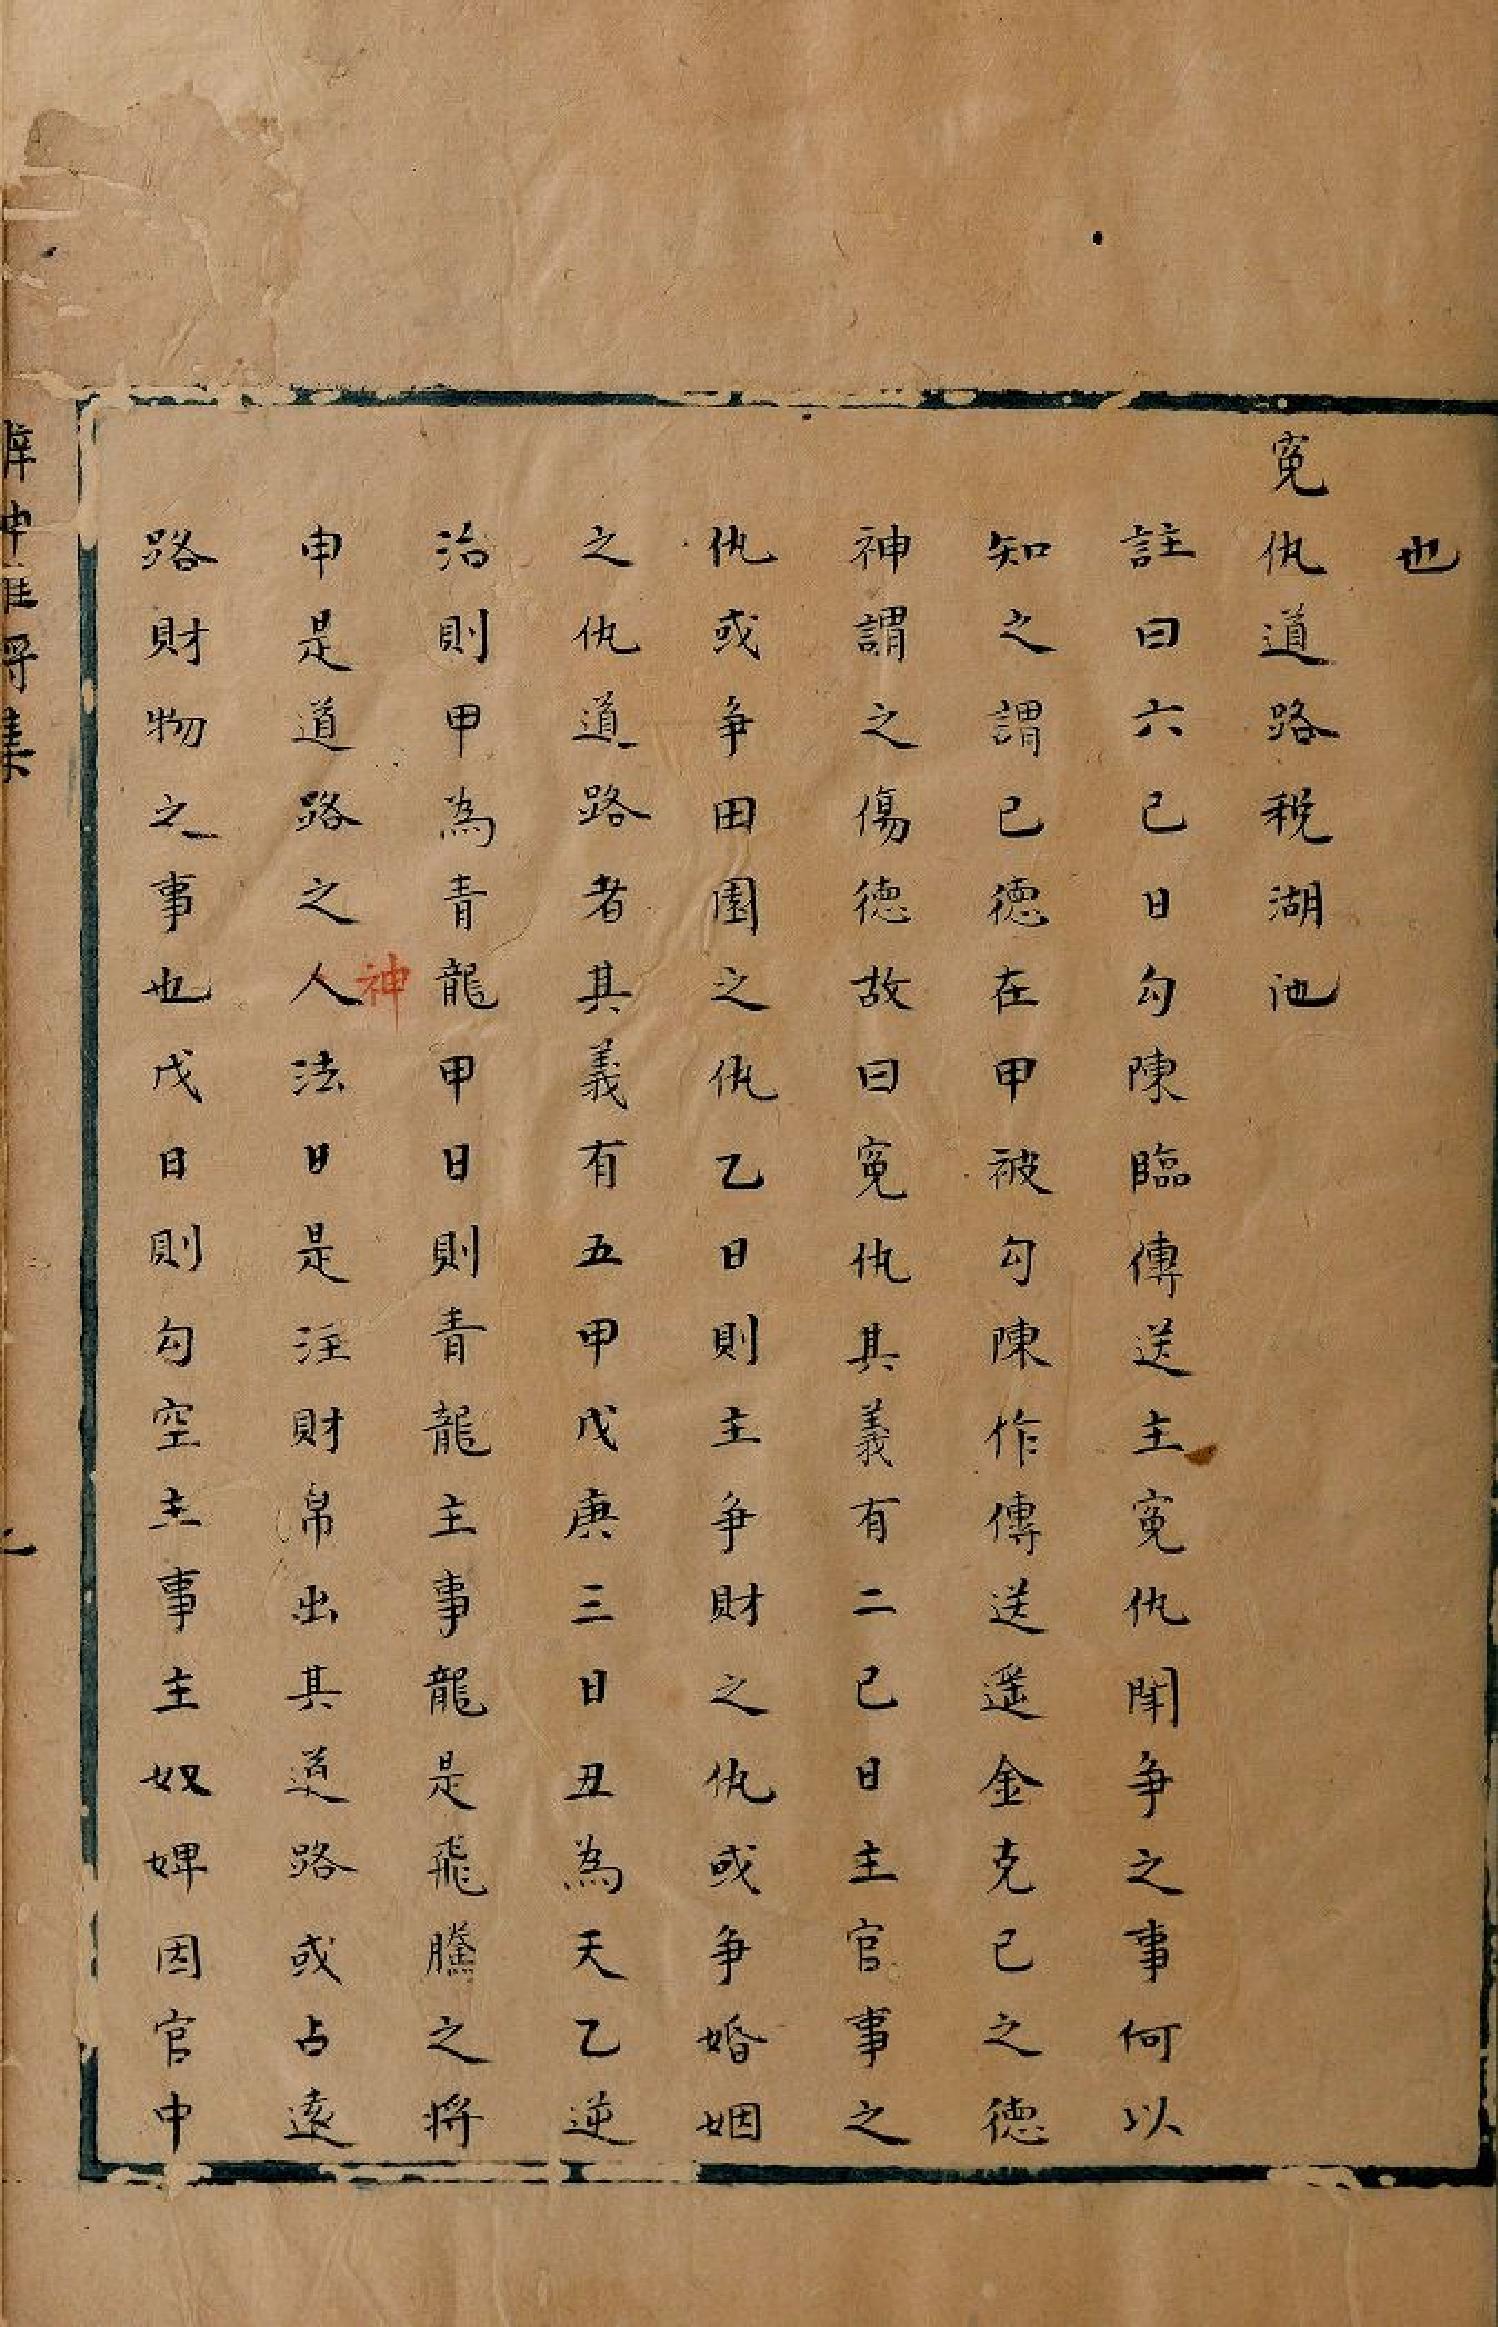 也
寃仇道路税湖池
註曰六己日勾陳臨傳送主寃仇鬭争之事何以
知之謂己德在甲被勾陳作傳送遥金克己之德
神謂之傷德故曰寃仇其義有二己日主官事之
仇或争田園之仇乙日則主争財之仇或争婚姻
之仇道路者其義有五甲戊庚三日丑為天乙逆
治則甲為青龍甲日則青龍主事龍是飛騰之將
神
申是道路之人法日是注財帛出其道路或占遠
路財物之事也戊日則勾空主事主奴婢因官中
集